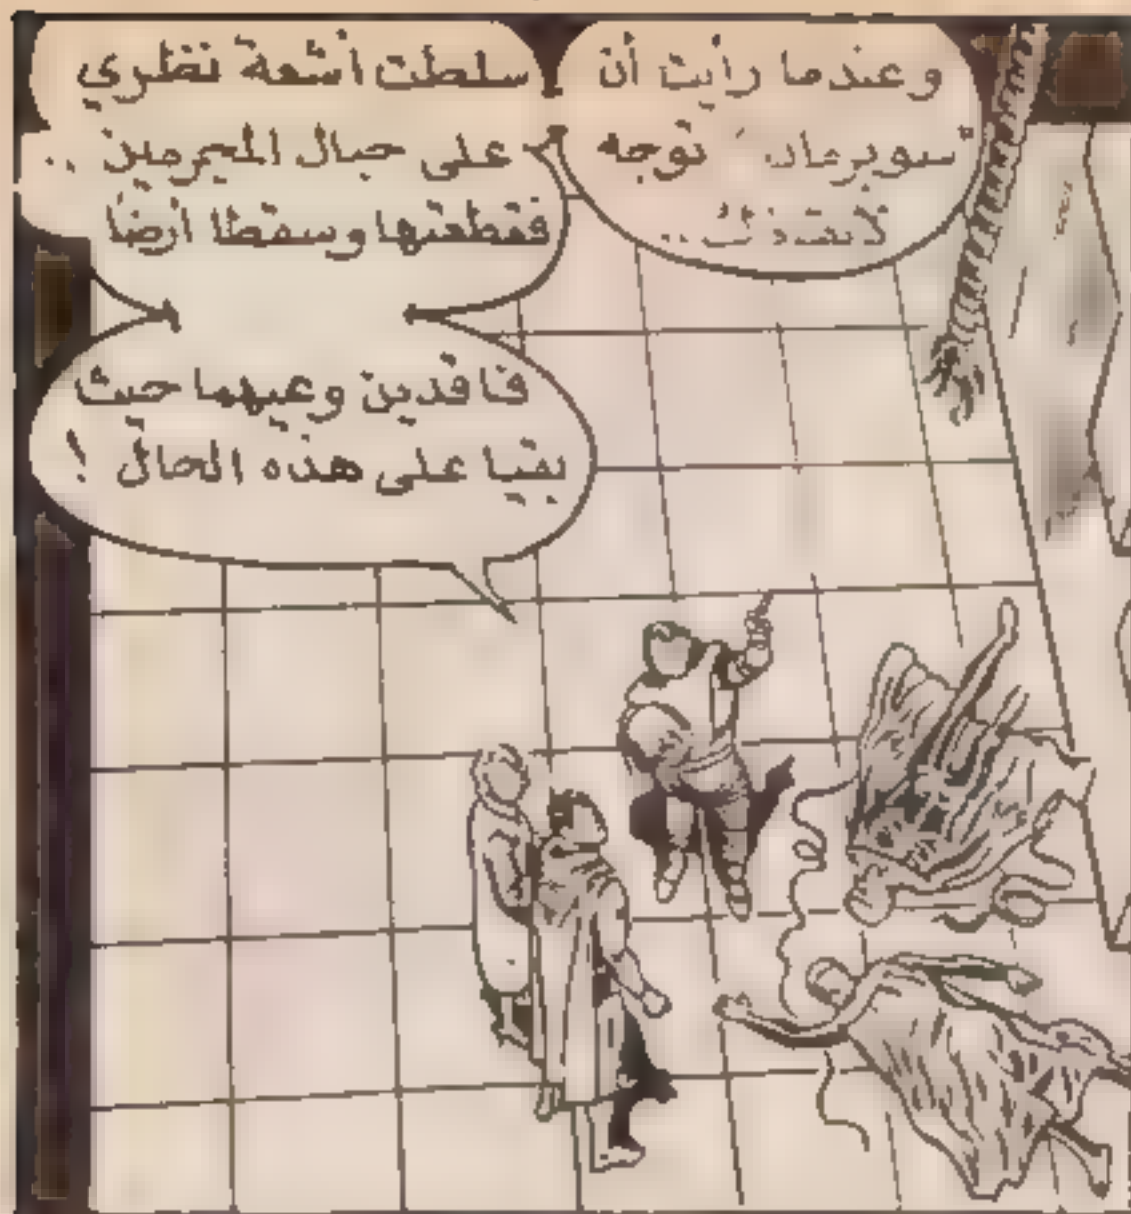 وعندما رأيت أن
"سوبرمان" توجه
لانقاذك ..
سلطت أشعة نظري
على حبال المجرمين ..
فقطعتها وسقطا أرضا
فاقدين وعيهما حيث
بقيا على هذه الحال !